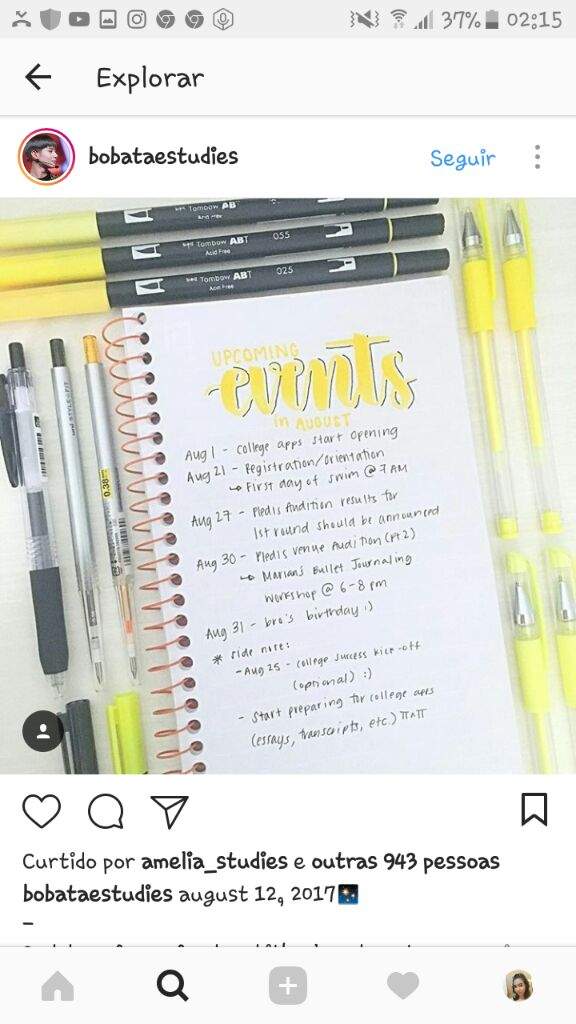 37% 02:15
Explorar
bobataestudies
Seguir
Tombow ABT
Acid Free
055
Tombow ABT
Acid Free
025
Tombow ABT
Acid Free
UPCOMING
events
in AUGUST
Aug 1 - college apps start opening
Aug 21 - Registration/Orientation
↳ First day of swim @ 7 AM
Aug 27 - Pledis Audition results for
1st round should be announced
Aug 30 - Pledis Venue Audition (Pt 2)
↳ Marian's Bullet Journaling
Workshop @ 6-8 pm
Aug 31 - bro's birthday :)
* side note:
- Aug 25 - college success kick-off
(optional) :)
- Start preparing for college apps
(essays, transcripts, etc.) ㅠㅅㅠ
0.38
Curtido por amelia_studies e outras 943 pessoas
bobataestudies august 12, 2017
-